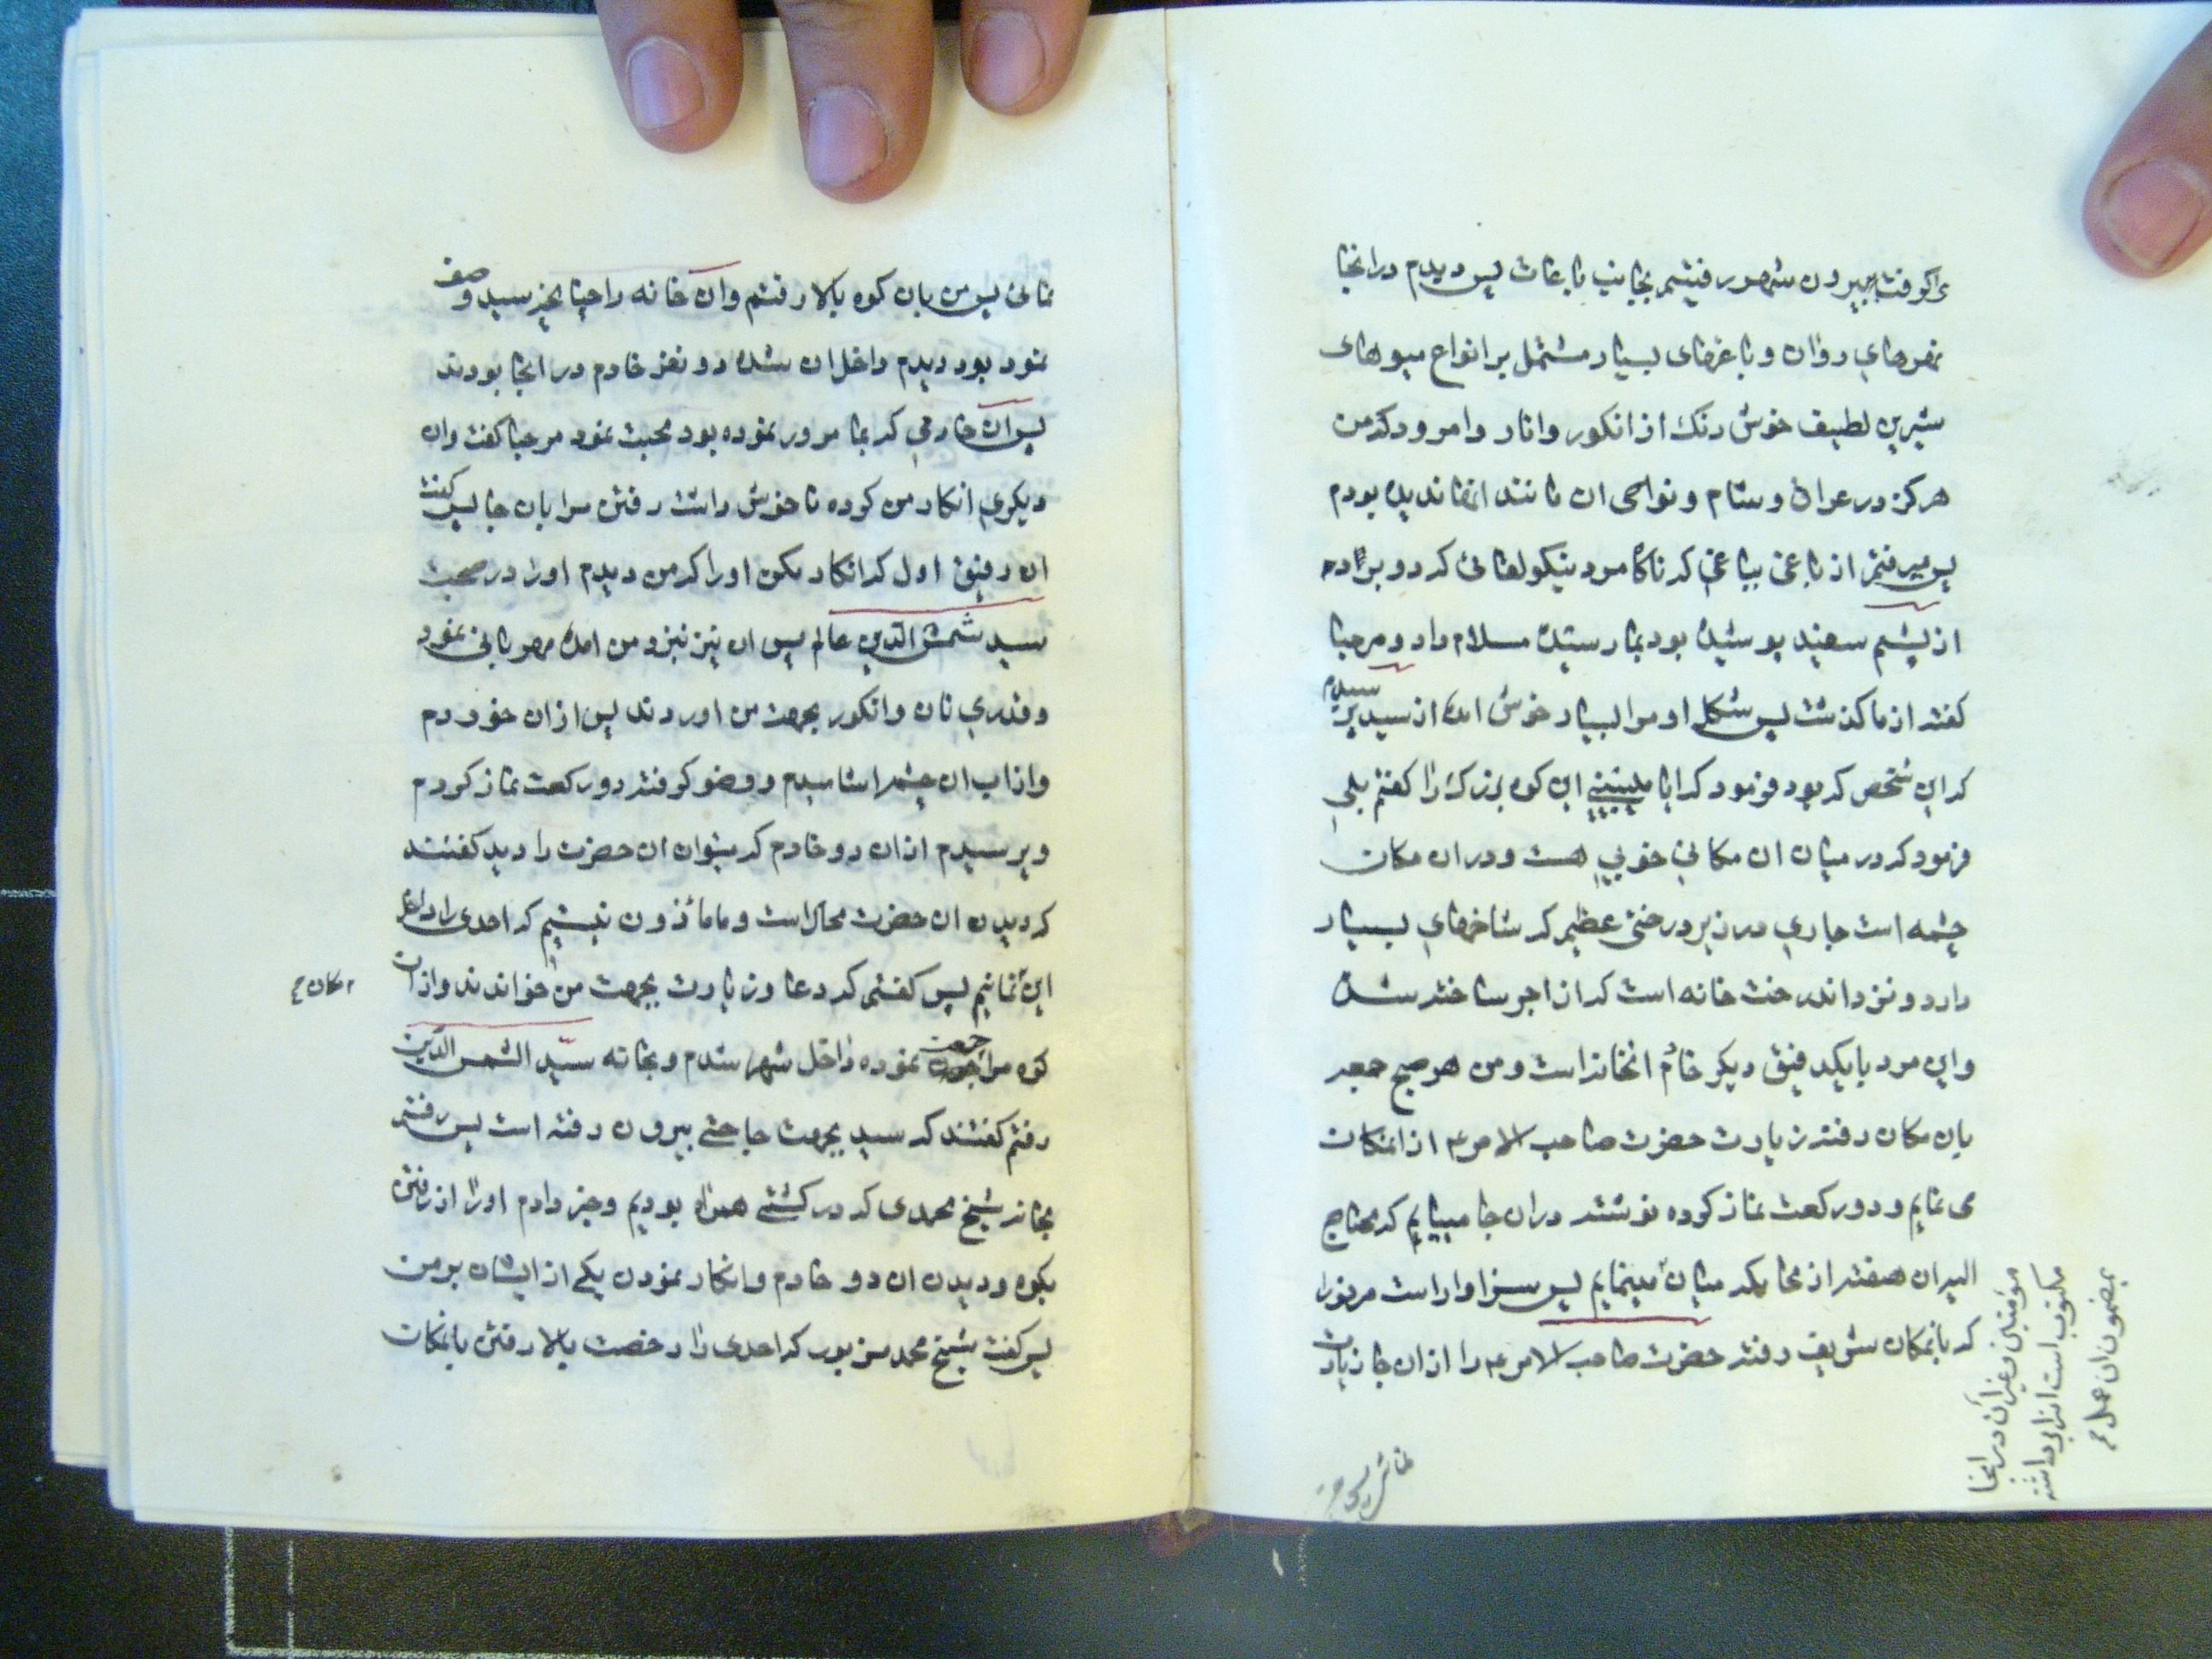 را گرفته بیرون شهر رفتیم بجانب باغات پس دیدم در انجا
نهرهای روان و باغهای بسیار مشتمل بر انواع میوهای
شیرین لطیف خوش رنک از انکور و انار و امرود که من
هرکز در عراق و شام و نواحی ان مانند انها ندیده بودم
پس میرفتم از باغی بباغی که ناکاه مرد نیکولقائی که دو برد
از پشم سفید پوشیده بود بما رسیده سلام داد و مرحبا
کفته از ما کذشت پس شکل او مرا بسیار خوش امد از سید پرسیدم
که این شخص که بود فرمود که ایا میبینی این کوه بزرک را کفتم بلی
فرمود که در میان ان مکانی خوبی هست و در ان مکان
چشمه است جاری در زیر درختی عظیم که شاخهای بسیار
دارد و نزد اندرخت خانه است که از اجر ساخته شده
و این مرد با یکرفیق دیکر خادم انخانه است و من هر صبح جمعه
بان مکان رفته زیارت حضرت صاحب الامر ع از انمکان
می نمایم و دو رکعت نماز کرده نوشته در ان جا مییابم که محتاج
الیه ان هفته از محاکمه میان مینمایم پس سزاوار است مر تورا
که بانمکان شریف رفته حضرت صاحب الامر ع را از ان جا زیارت
مؤمنین و غیر آن در انجا
مکتوب است انرا برداشته
بمضمون ان عمل
نمائی پس من بان کوه بالا رفتم و ان خانه را چنانچه سید وصف
نمود بود دیدم داخل ان شده دو نفر خادم در انجا بودند
پس ان خادمی که بما مرور نموده بود محبت نمود مرحبا کفت و ان
دیکری انکار من کرده ناخوش داشت رفتن مرا بان جا پس کفت
ان رفیق اول که انکار مکن اورا که من دیدم اورا در صحبت
سید شمس الدین عالم پس ان نیز نیزد من امده مهربانی نمود
و قدری نان و انکور بجهت من اوردند پس از ان خوردم
و از اب ان چشمه اشامیدم و وضو کرفته دو رکعت نماز کردم
و پرسیدم از ان دو خادم که میتوان ان حضرت را دید کفتند
که دیدن ان حضرت محال است و ما ماذون نیستیم که احدی را داخل
این نمائیم پس کفتم که دعا و زیارت بجهت من خواندند و از ان
کوه مراجعت نموده داخل شهر شدم و بخانه سید الشمس الدین
رفتم کفتند که سید بجهت حاجتی بیرون رفته است پس رفتم
بخانه شیخ محمدی که در کشتی همراه بودیم و خبر دادم اورا از رفتن
بکوه و دیدن ان دو خادم و انکار نمودن یکی از ایشان بر من
پس کفت شیخ محمد من بور که احدی را رخصت بالا رفتن بانمکان